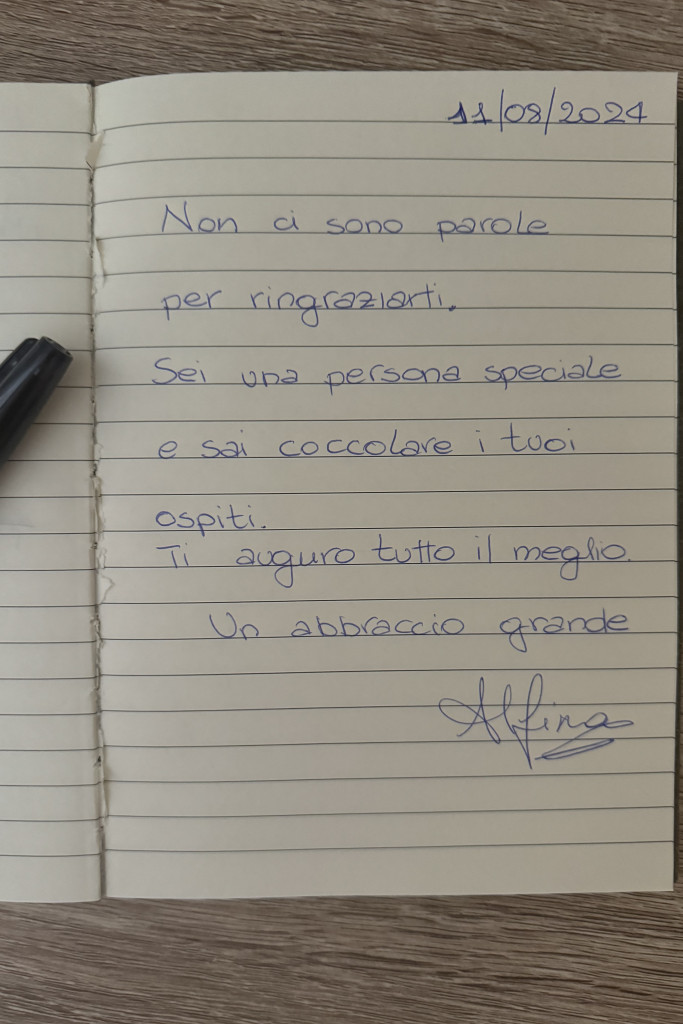 11/08/2024
Non ci sono parole
per ringraziarti.
Sei una persona speciale
e sai coccolare i tuoi
ospiti.
Ti auguro tutto il meglio.
Un abbraccio grande
Alfina